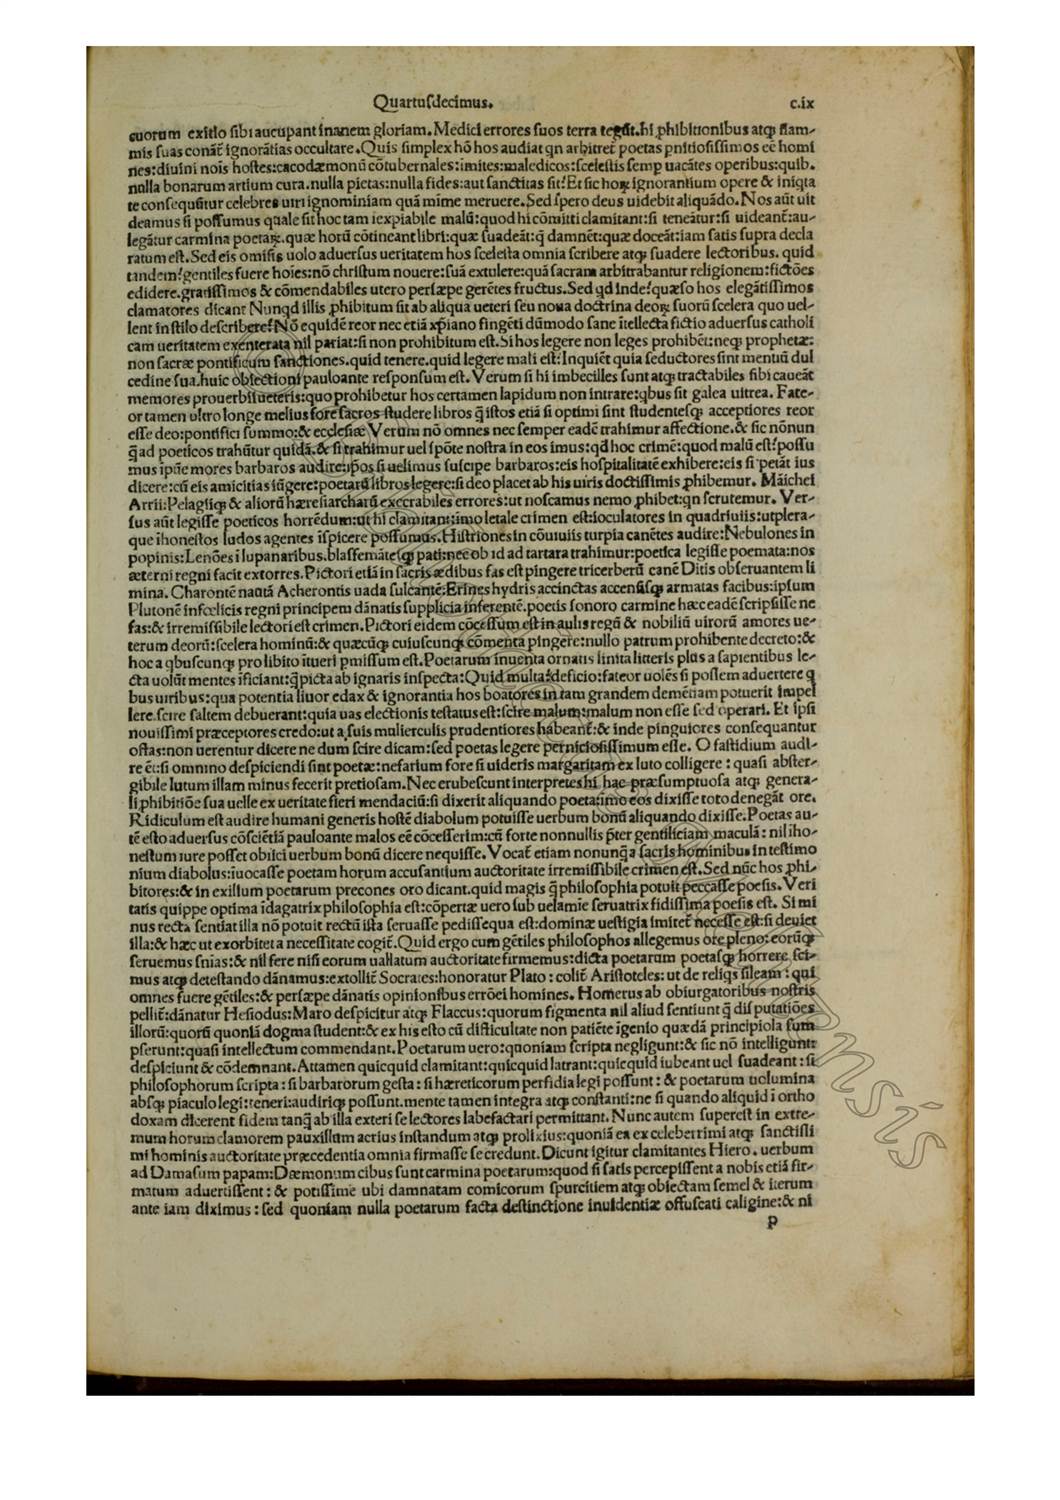 Quartusdecimus. c.ix
cuorum exitio sibi aucupant inanem gloriam. Medici errores suos terra tegũt. hi ꝓhibitionibus atqꝫ flam-
mis suas conãt̃ ignorãtias occultare. Quis simplex hõ hos audiat qn arbitret̃ poetas pnitiosissimos eẽ homi
nes: diuini nois hostes: cacodæmonũ cõtubernales: imites: maledicos: scelestis semp uacãtes operibus: quib.
nulla bonarum artium cura. nulla pietas: nulla fides: aut sanctitas sit? Et sic hoꝝ ignorantium opere & iniqta
te consequũtur celebres uiri ignominiam quã mime meruere. Sed spero deus uidebit aliquãdo. Nos aũt uit
deamus si possumus quale sit hoc tam iexpiabile malũ: quod hi cõmitti clamitant: si teneãtur: si uideant̃: au-
legãtur carmina poetaꝝ. quæ horũ cõtineant libri: quæ suadeãt: q̃ damnẽt: quæ doceãt: iam satis supra decla
ratum est. Sed eis omissis uolo aduersus ueritatem hos scelesta omnia scribere atqꝫ suadere lectoribus. quid
tandem? gentiles fuere hoies: nõ christum nouere: suã extulere: quã sacram arbitrabantur religionem: fictões
edidere. gratissimos & cõmendabiles utero persæpe gerẽtes fructus. Sed qd inde? quæso hos elegãtissimos
clamatores dicant Nunqd illis ꝓhibitum sit ab aliqua ueteri seu noua doctrina deoꝝ suorũ scelera quo uel-
lent in stilo describere? Nõ equidẽ reor nec etiã xp̃iano fingẽti dũmodo sane ĩtellecta fictio aduersus catholi
cam ueritatem exenterata nil pariat: si non prohibitum est. Si hos legere non leges prohibẽt: neqꝫ prophetæ:
non sacræ pontificum sanctiones. quid tenere. quid legere mali est: Inquiẽt quia seductores sint mentiũ dul
cedine sua. huic obiectioni pauloante responsum est. Verum si hi imbecilles sunt atqꝫ tractabiles sibi caueãt
memores prouerbii ueteris: quo prohibetur hos certamen lapidum non intrare: qbus sit galea uitrea. Fate-
or tamen ultro longe melius fore sacros studere libros q̃ istos etiã si optimi sint studentesqꝫ acceptiores reor
esse deo: pontifici summo: & ecclesiæ Verum nõ omnes nec semper eadẽ trahimur affectione. & sic nõnun
q̃ ad poeticos trahũtur quidã. & si trahimur uel ipõte nostra in eos imus: qd̃ hoc crimẽ: quod malũ est? possu
mus ipũe mores barbaros audire: ipos si uelimus suscipe barbaros: eis hospitalitatẽ exhibere: eis si petãt ius
dicere: cũ eis amicitias iũgere: poetarũ libros legere: si deo placet ab his uiris doctissimis ꝓhibemur. Mãichei
Arrii: Pelagiiqꝫ & aliorũ hæresiarcharũ execrabiles errores: ut noscamus nemo ꝓhibet: qn scrutemur. Ver-
sus aũt legisse poeticos horrẽdum: ut hi clamitant: imo letale crimen est: ioculatores in quadriuiis: utplera-
que ihonestos ludos agentes ĩspicere possumus. Histriones in cõuiuiis turpia canẽtes audire: Nebulones in
popinis: Lenões ĩ lupanaribus. blasfemãtesqꝫ pati: nec ob id ad tartara trahimur: poetica legisse poemata: nos
æterni regni facit extorres. Pictori etiã in sacris ædibus fas est pingere tricerberũ canẽ Ditis obseruantem li
mina. Charontẽ nautã Acherontis uada sulcantẽ: Erines hydris accinctas accensisqꝫ armatas facibus: ipsum
Plutonẽ infœlicis regni principem dãnatis supplicia inferentẽ. poetis sonoro carmine hæc eadẽ scripsisse ne
fas: & irremissibile lectori est crimen. Pictori eidem cõcessum est in aulis regũ & nobiliũ uirorũ amores ue-
terum deorũ: scelera hominũ: & quæcũqꝫ cuiuscunqꝫ cõmenta pingere: nullo patrum prohibente decreto: &
hoc a qbuscunqꝫ pro libito ĩtueri pmissum est. Poetarum inuenta ornatis linita litteris plus a sapientibus le-
cta uolũt mentes ĩficiant: q̃ picta ab ignaris inspecta: Quid multa? deficio: fateor uolẽs si possem aduertere q
bus uiribus: qua potentia liuor edax & ignorantia hos boatores in tam grandem demẽtiam potuerit impel
lere. scire saltem debuerant: quia uas electionis testatus est: scire malum: malum non esse sed operari. Et ipsi
nouissimi præceptores credo: ut a suis mulierculis prudentiores habeant̃: & inde pinguiores consequantur
ofsas: non uerentur dicere ne dum scire dicam: sed poetas legere perniciosissimum esse. O fastidium audi-
re eẽ: si omnino despiciendi sint poetæ: nefarium fore si uideris margaritam ex luto colligere: quasi abster-
gibile lutum illam minus fecerit pretiosam. Nec erubescunt interpretes hi hac præsumptuosa atqꝫ genera-
li ꝓhibitiõe sua uelle ex ueritate fieri mendaciũ: si dixerit aliquando poeta: imo eos dixisse toto denegãt ore.
Ridiculum est audire humani generis hostẽ diabolum potuisse uerbum bonũ aliquando dixisse. Poetas au-
tẽ esto aduersus cõsciẽtiã pauloante malos eẽ cõcesserim: cũ forte nonnullis p̃ter gentiliciam maculã: nil iho-
nestum iure posset obiici uerbum bonũ dicere nequisse. Vocat̃ etiam nonunq̃ a sacris hominibus in testimo
nium diabolus: iuocasse poetam horum accusantium auctoritate irremissibile crimen est. Sed nũc hos ꝓhi-
bitores: & in exilium poetarum precones oro dicant. quid magis q̃ philosophia potuit peccasse poesis. Veri
tatis quippe optima ĩdagatrix philosophia est: cõpertæ uero sub uelamĩe seruatrix fidissima poesis est. Si mi
nus recta sentiat illa nõ potuit rectũ ista seruasse pedissequa est: dominæ uestigia imitet̃ necesse est: si deuiet
illa: & hæc ut exorbitet a necessitate cogit̃. Quid ergo cum gẽtiles philosophos allegemus ore pleno: eorũqꝫ
seruemus sñias: & nil fere nisi eorum uallatum auctoritate firmemus: dicta poetarum poetasqꝫ horrere sci-
mus atqꝫ detestando dãnamus: extollit̃ Socrates: honoratur Plato: colit̃ Aristoteles: ut de reliqs sileam: qui
omnes fuere gẽtiles: & persæpe dãnatis opinionibus errõei homines. Homerus ab obiurgatoribus nostris
pellit̃: dãnatur Hesiodus: Maro despicitur atqꝫ Flaccus: quorum figmenta nil aliud sentiunt q̃ disputatiões
illorũ: quorũ quoniã dogma student: & ex his esto cũ difficultate non patiẽte ĩgenio quædã principiola sum
pserunt: quasi intellectum commendant. Poetarum uero: quoniam scripta negligunt: & sic nõ intelligunt:
despiciunt & cõdemnant. Attamen quicquid clamitant: quicquid latrant: quicquid iubeant uel suadeant: si
philosophorum scripta: si barbarorum gesta: si hæreticorum perfidia legi possunt: & poetarum uolumina
absqꝫ piaculo legi: teneri: audiriqꝫ possunt. mente tamen integra atqꝫ constanti: ne si quando aliquid ĩ ortho
doxam dicerent fidem tanq̃ ab illa exteri se lectores labefactari permittant. Nunc autem superest in extre-
mum horum clamorem pauxillum acrius instandum atqꝫ prolixius: quoniã ea ex celeberrimi atqꝫ sanctissi
mi hominis auctoritate præcedentia omnia firmasse se credunt. Dicunt igitur clamitantes Hiero. uerbum
ad Damasum papam: Dæmonum cibus sunt carmina poetarum: quod si satis percepissent a nobis etiã fir-
matum aduertissent: & potissime ubi damnatam comicorum spurcitiem atqꝫ obiectam semel & iterum
ante iam diximus: sed quoniam nulla poetarum facta destinctione inuidentiæ offuscati caligine: & ni
p